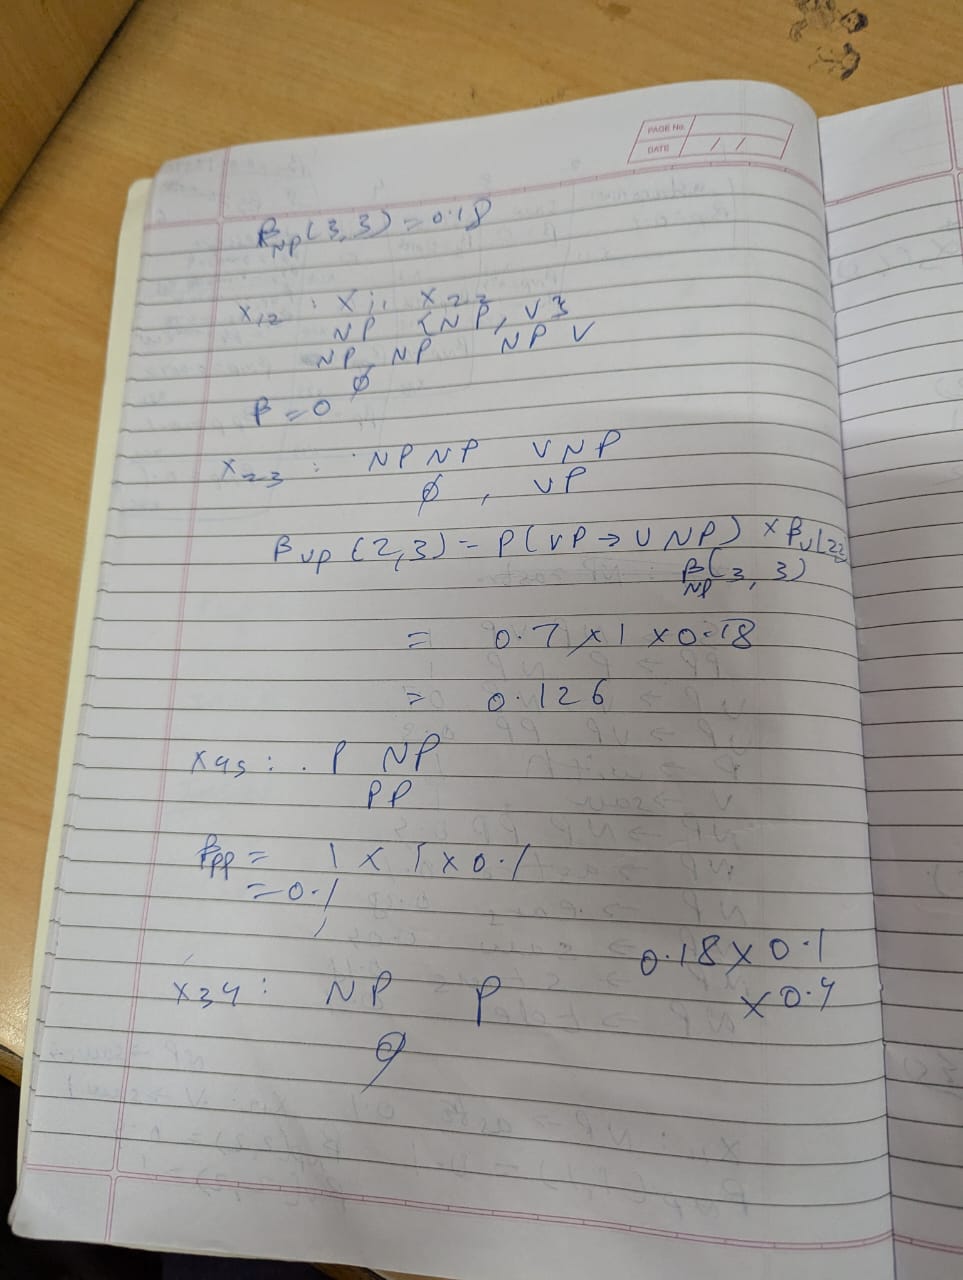 PAGE No.
DATE / /
β_NP (3,3) = 0.18
X12 : X11 X22
NP {NP, V}
NP NP NP V
φ
β = 0
X23 : NP NP V NP
φ , VP
β_VP (2,3) = P(VP → V NP) × β_V(22)
β_NP(3, 3)
= 0.7 × 1 × 0.18
= 0.126
X45 : . P NP
PP
β_PP = 1 × 1 × 0.1
= 0.1
0.18 × 0.1
X34 : NP P × 0.4
φ